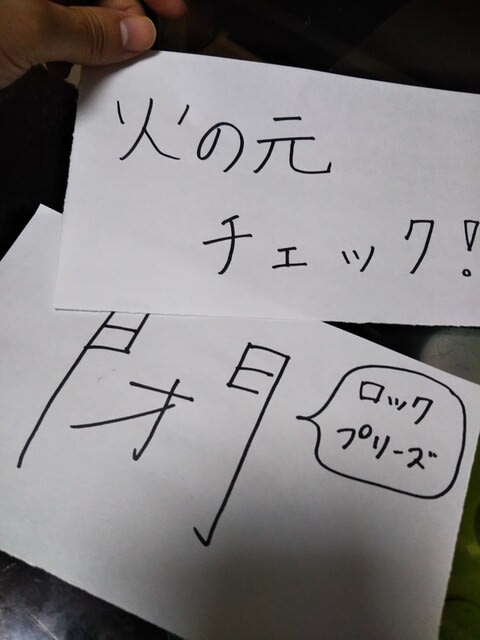 火の元
チェック!
閉
ロック
プリーズ